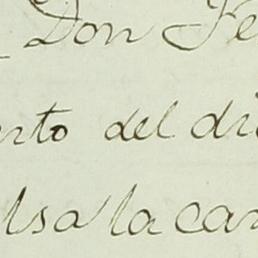 Don Fe
nto del di
lsa la car